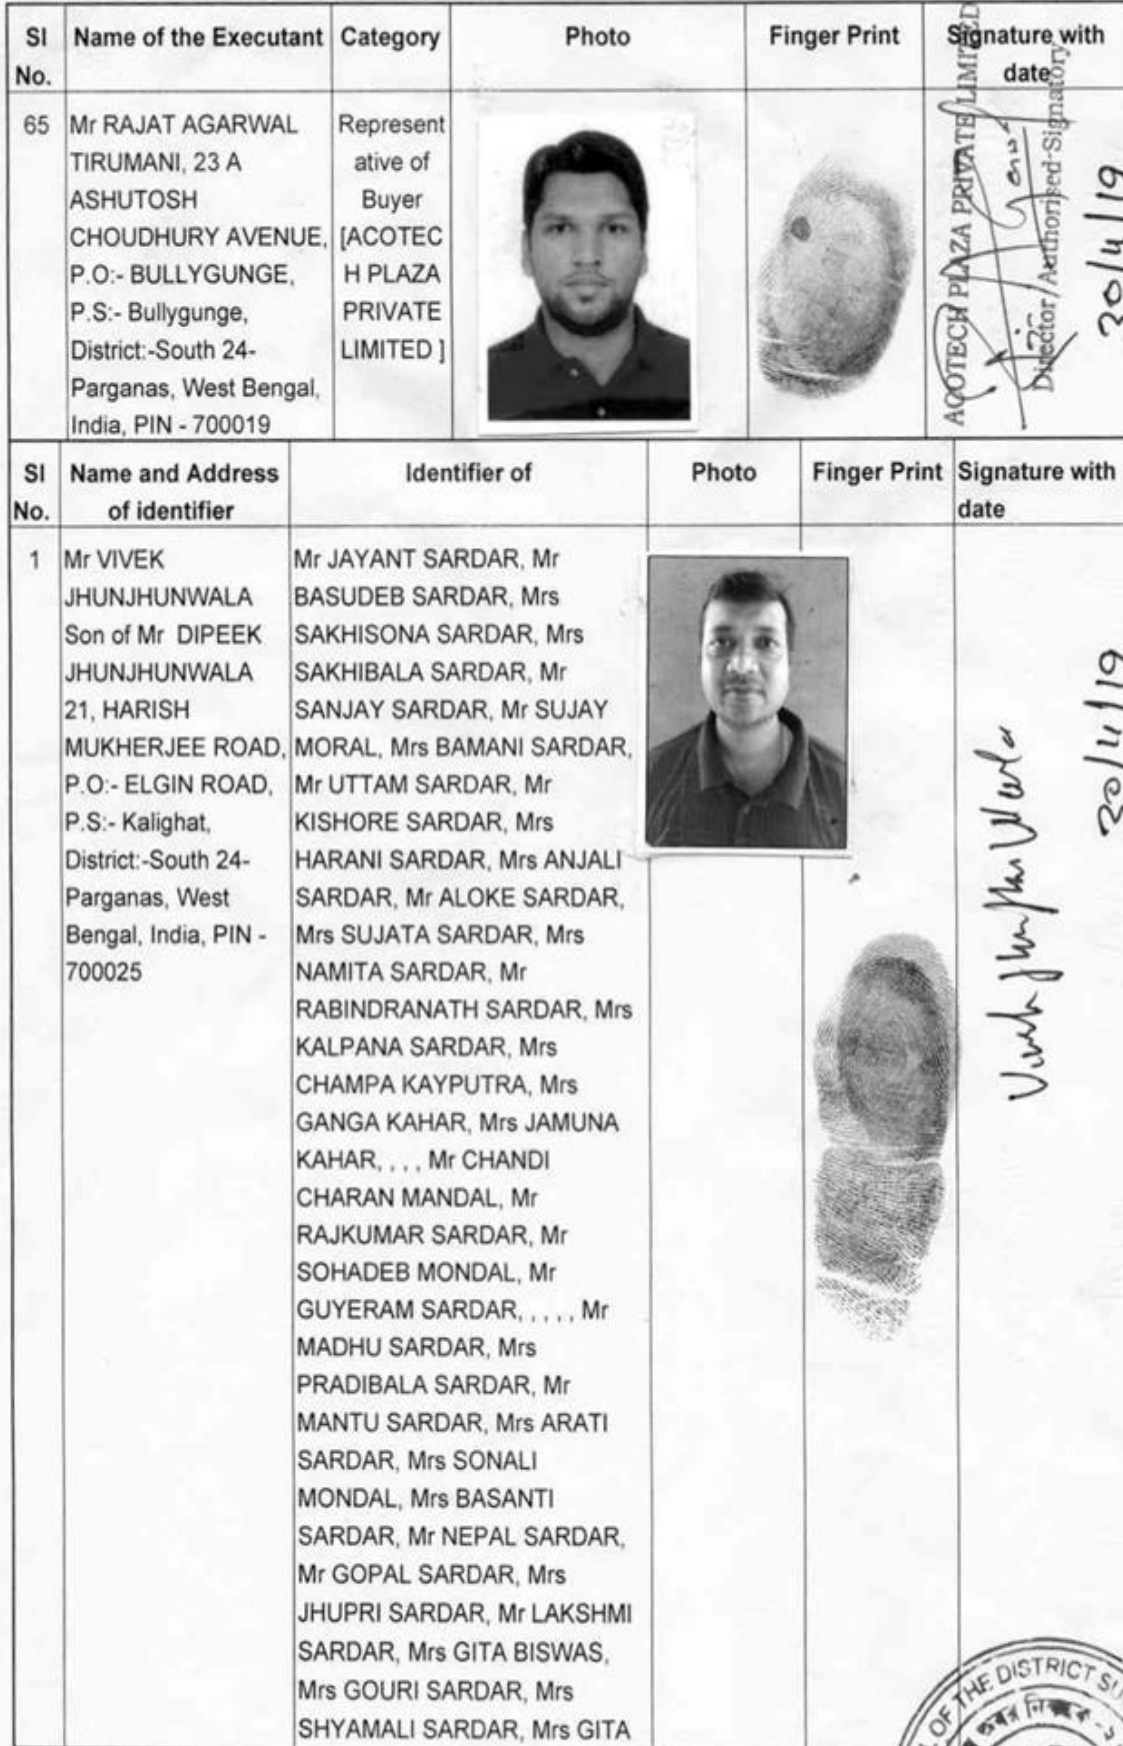 Sl No. Name of the Executant Category Photo Finger Print Signature with date
65 Mr RAJAT AGARWAL
TIRUMANI, 23 A
ASHUTOSH
CHOUDHURY AVENUE,
P.O:- BULLYGUNGE,
P.S:- Bullygunge,
District:-South 24-
Parganas, West Bengal,
India, PIN - 700019
Represent
ative of
Buyer
[ACOTEC
H PLAZA
PRIVATE
LIMITED ]
ACOTECH PLAZA PRIVATE LIMITED
Director/Authorised Signatory
20/4/19
Sl No. Name and Address of identifier Identifier of Photo Finger Print Signature with date
1 Mr VIVEK
JHUNJHUNWALA
Son of Mr DIPEEK
JHUNJHUNWALA
21, HARISH
MUKHERJEE ROAD,
P.O:- ELGIN ROAD,
P.S:- Kalighat,
District:-South 24-
Parganas, West
Bengal, India, PIN -
700025
Mr JAYANT SARDAR, Mr
BASUDEB SARDAR, Mrs
SAKHISONA SARDAR, Mrs
SAKHIBALA SARDAR, Mr
SANJAY SARDAR, Mr SUJAY
MORAL, Mrs BAMANI SARDAR,
Mr UTTAM SARDAR, Mr
KISHORE SARDAR, Mrs
HARANI SARDAR, Mrs ANJALI
SARDAR, Mr ALOKE SARDAR,
Mrs SUJATA SARDAR, Mrs
NAMITA SARDAR, Mr
RABINDRANATH SARDAR, Mrs
KALPANA SARDAR, Mrs
CHAMPA KAYPUTRA, Mrs
GANGA KAHAR, Mrs JAMUNA
KAHAR, , , , Mr CHANDI
CHARAN MANDAL, Mr
RAJKUMAR SARDAR, Mr
SOHADEB MONDAL, Mr
GUYERAM SARDAR, , , , , Mr
MADHU SARDAR, Mrs
PRADIBALA SARDAR, Mr
MANTU SARDAR, Mrs ARATI
SARDAR, Mrs SONALI
MONDAL, Mrs BASANTI
SARDAR, Mr NEPAL SARDAR,
Mr GOPAL SARDAR, Mrs
JHUPRI SARDAR, Mr LAKSHMI
SARDAR, Mrs GITA BISWAS,
Mrs GOURI SARDAR, Mrs
SHYAMALI SARDAR, Mrs GITA
Vivek JhunJhunWala
20/4/19
OF THE DISTRICT SU